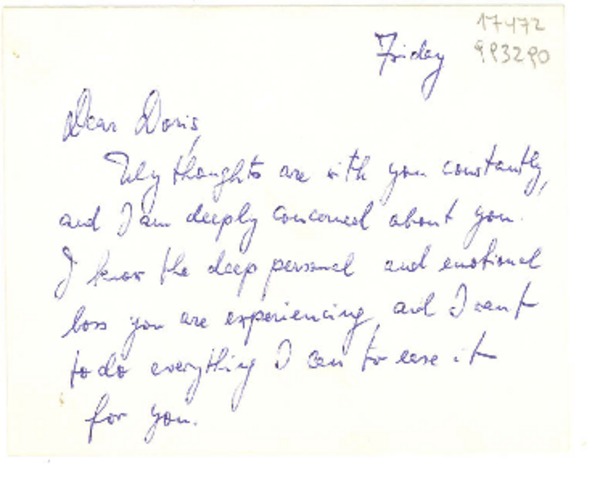 17472
Friday 993290
Dear Doris,
My thoughts are with you constantly,
and I am deeply concerned about you.
I know the deep personal and emotional
loss you are experiencing, and I want
to do everything I can to ease it
for you.